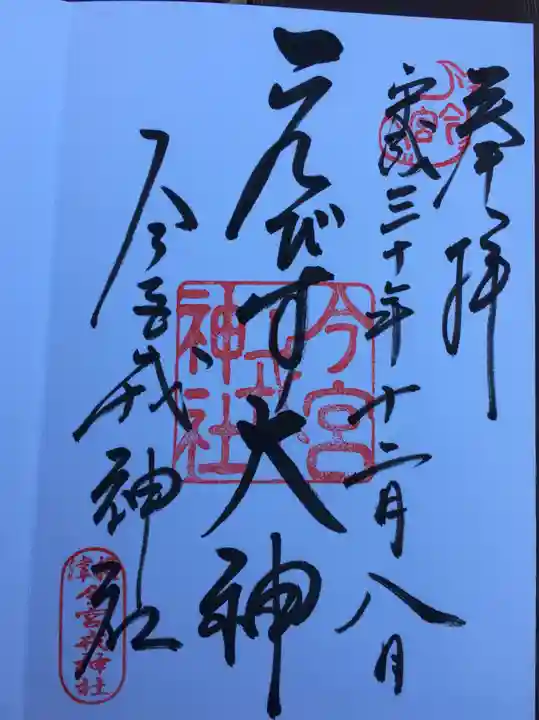 奉拝
平成三十年十二月八日
ゑびす大神
今宮戎神社
今宮戎神社
今宮